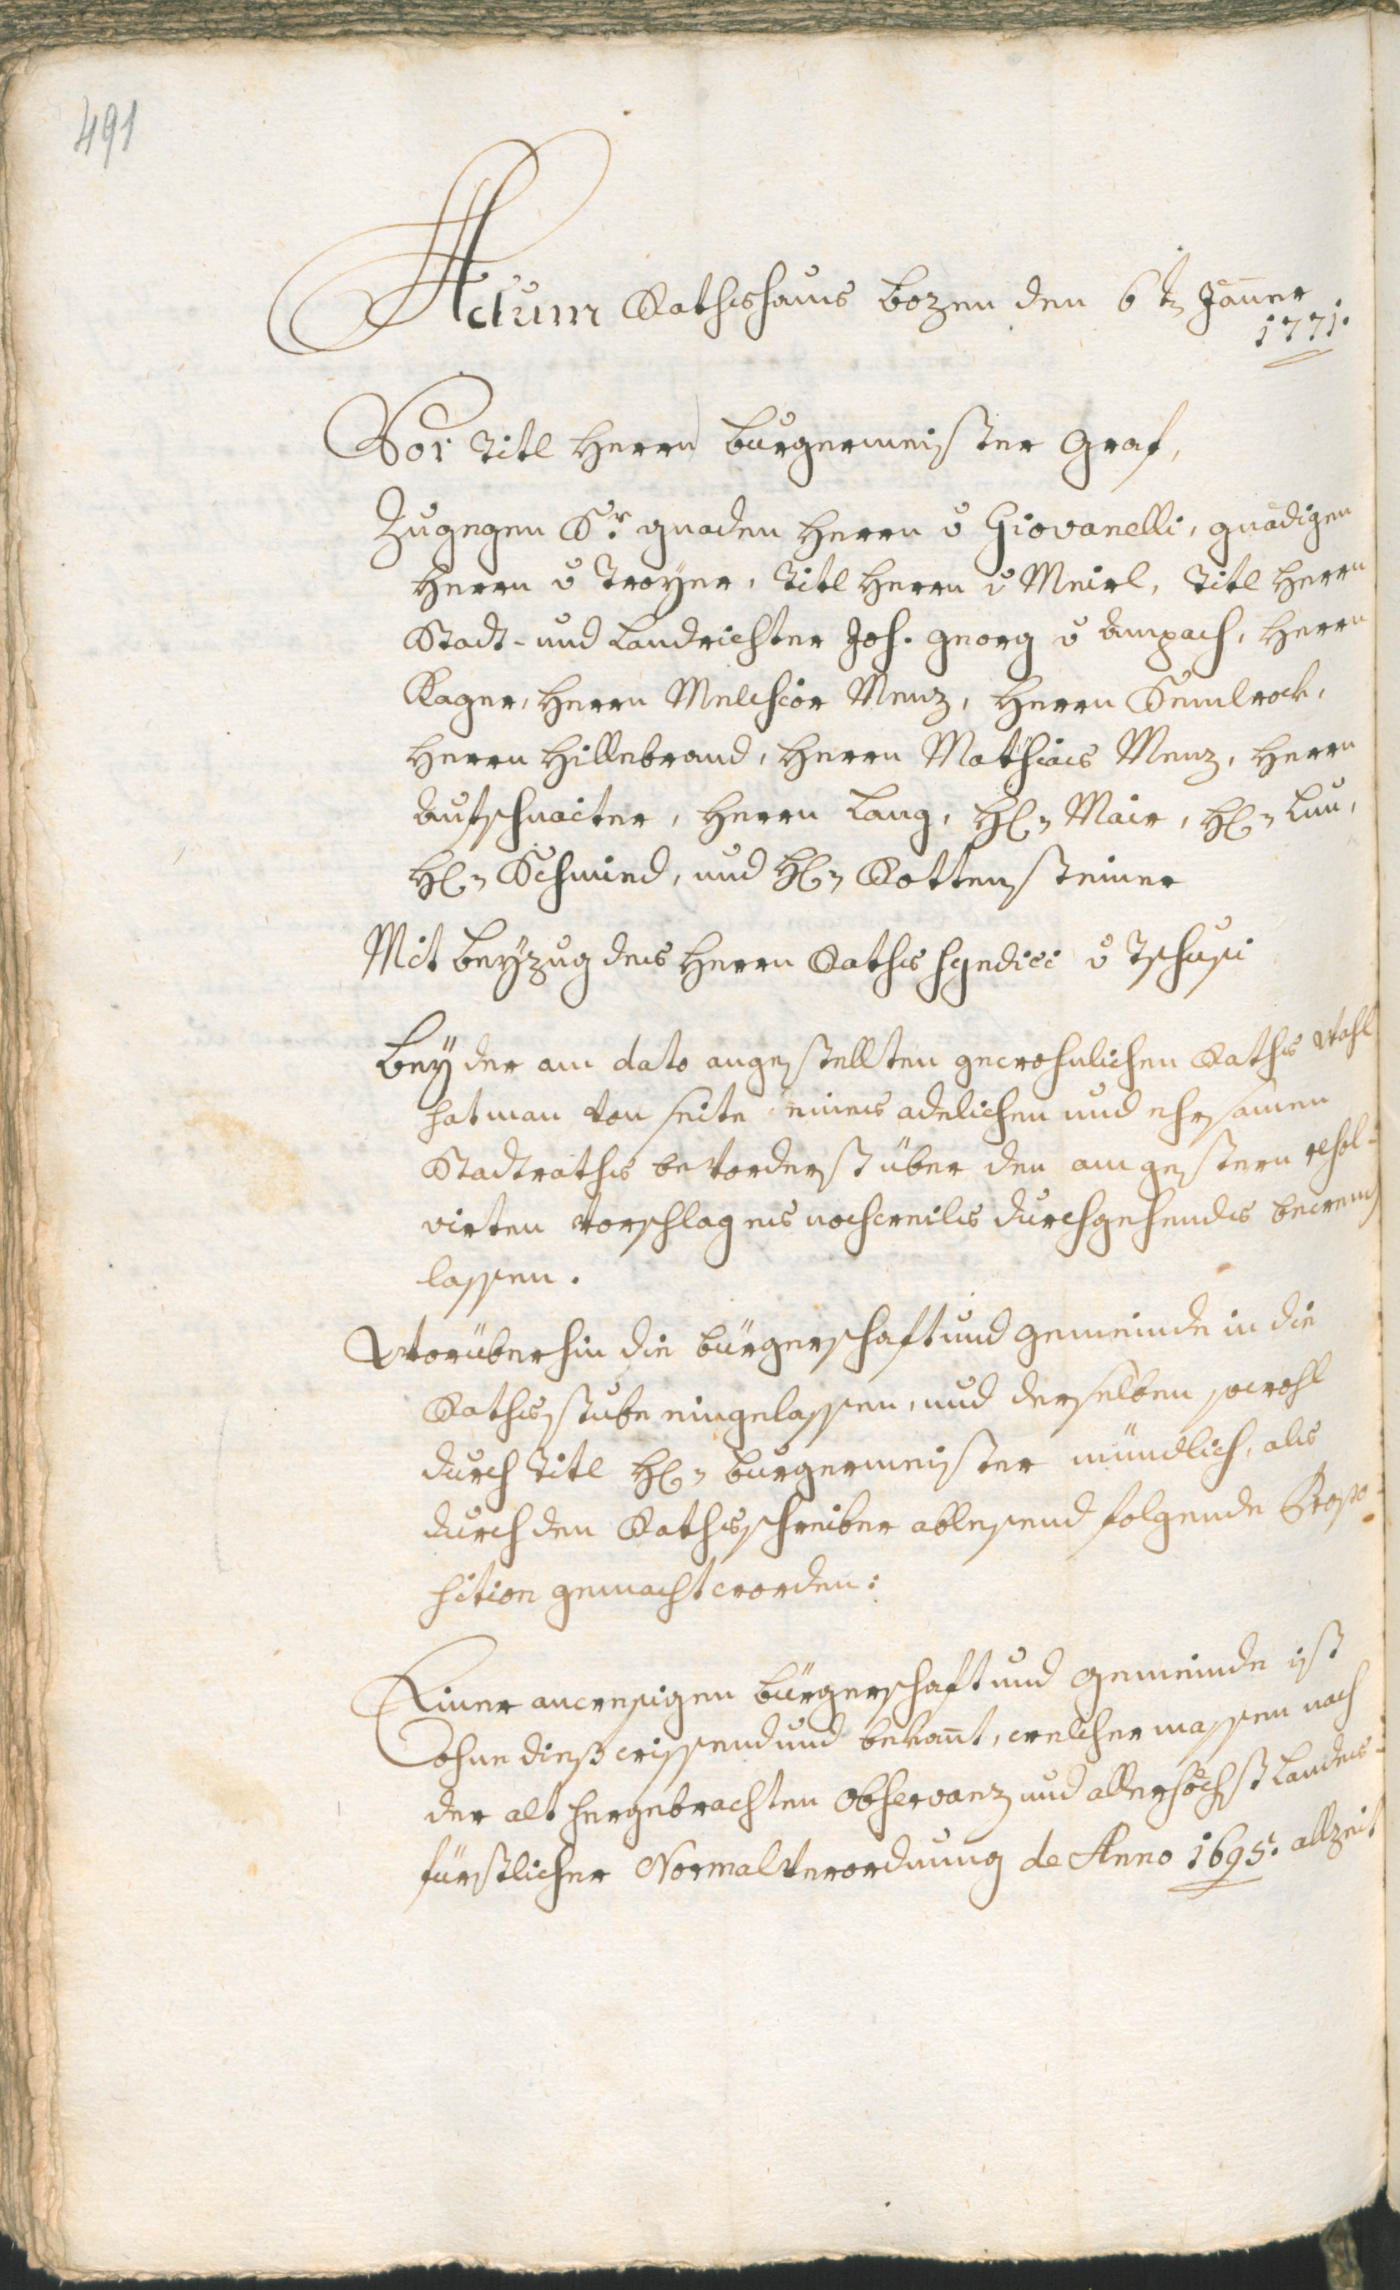 491
Actum Rathshaus Bozen den 6tn Jäner
1771.
Vor Titl Herrn Burgermeister Graf,
Zugegen Sr. gnaden Herrn v Giovanelli, gnädigen
Herrn v Troyer, Titl Herrn v Meirl, Titl Herrn
Stadt- und Landrichter Joh. Georg v Anpach, Herrn
Kager, Herrn Melchior Menz, Herrn Semlrock,
Herrn Hillebrand, Herrn Mathias Menz, Herrn
Aufschnaiter, Herrn Lang, H[errn] Mair, H[errn] Lun,
H[errn] Schmied, und H[errn] Rottensteiner
Mit Beyzug des Herrn Raths Syndici v Tschusi
Bey der am dato angestellten gewohnlichen Raths Wahl
hat man von seite eines adelichen und ehrsamen
Stadtraths bevorderst über den am gestern resol-
virten Vorschlag es nochweils durchgehends bewend
lassen.
Worüberhin die Bürgerschaft und Gemeinde in die
Rathsstube eingelassen, und derselben sowohl
durch Titl H[errn] Burgermeister mündlich, als
durch den Rathsschreiber ablesend folgende Propo-
sition gemacht worden:
Einer anwesigen Bürgerschaft und Gemeinde ist
ohne dieß wissend und bekant, welcher massen nach
der alt hergebrachten Observanz und allerhöchst Landes-
fürstlicher Normalverordnung de Anno 1695. allzeit